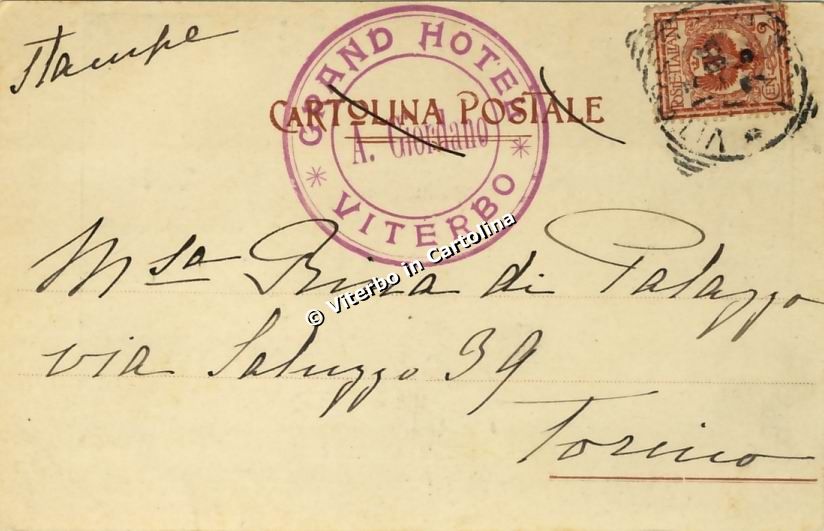 Stampe
GRAND HOTEL
CARTOLINA POSTALE
A. Giordano
VITERBO
© Viterbo in Cartolina
POSTE ITALIANE
M.sa di Palazzo
via Saluzzo 39
Torino